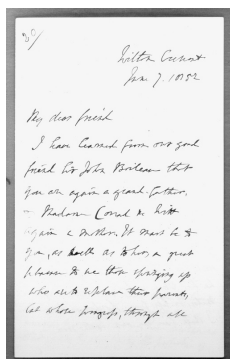 30/
Wilton Crescent
June 7. 1852
My dear friend
I have learned from our good
friend Sir John Boileau that
you are again a grand-father,
Madame Conrad de Witt
again a mother. It must be to
you, as well as to her, a great
pleasure to see them springing up
who are to replace their parents,
but whose progress, through all